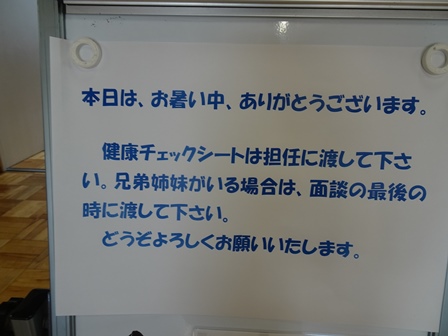 本日は、お暑い中、ありがとうございます。
健康チェックシートは担任に渡して下さ
い。兄弟姉妹がいる場合は、面談の最後の
時に渡して下さい。
どうぞよろしくお願いいたします。